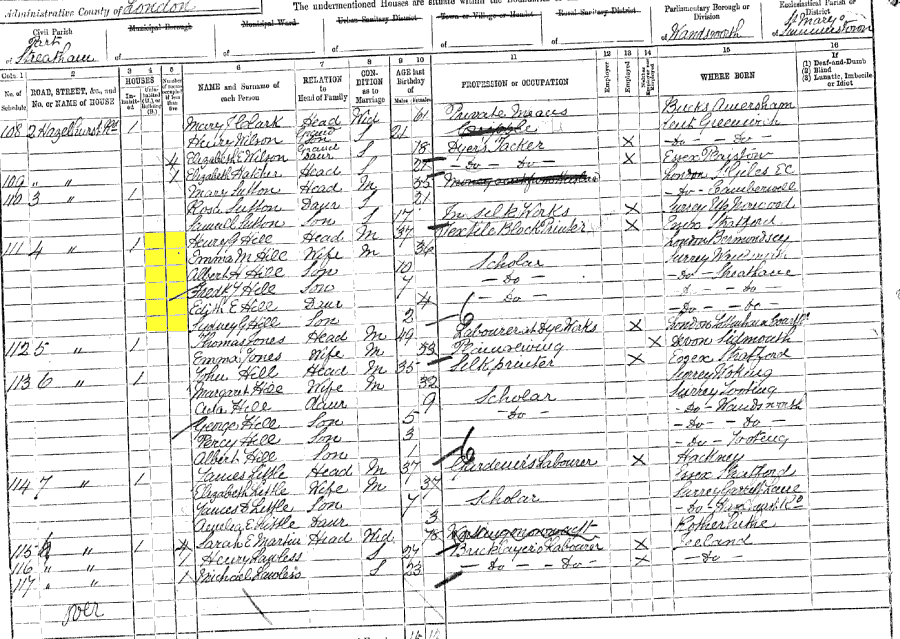 Administrative County of London
The undermentioned Houses are situate within the Boundaries of the
Civil Parish
Municipal Borough
Municipal Ward
Urban Sanitary District
Town or Village or Hamlet
Rural Sanitary District
Parliamentary Borough or Division
Ecclesiastical Parish or District
Part Streatham
of
of
of
of
of
of Wandsworth
of St Mary Summerstown
Cols. 1 2 3 4 5 6 7 8 9 10 11 12 13 14 15 16
No. of Schedule
ROAD, STREET, &c., and No. or NAME of HOUSE
HOUSES
In-habit-ed
NAME and Surname of each Person
RELATION to Head of Family
CON-DITION as to Marriage
AGE last birthday of
Males Females
PROFESSION or OCCUPATION
Employer
Employed
WHERE BORN
If
(1) Deaf-and-Dumb
(2) Blind
(3) Lunatic, Imbecile or Idiot
108 2 Hazelhurst Rd 1 Mary J Clark Head Wid 61 Private Means Bucks Amersham
Henry Wilson Grand Son S 21 Cripple Kent Greenwich
4 Elizabeth E Wilson Grand Daur S 18 Dyers Packer X - Do - Do -
109 " " 1 Elizabeth Hatcher Head S 21 - Do - Do - X Essex Plaistow
110 3 " 1 Mary Sutton Head M 55 London St Giles EC
Rosa Sutton Daur S 21 - Do - Camberwell
Samuel Sutton Son S 17 In Silk Works X Surrey Norwood
111 4 " 1 Henry J Hill Head M 37 Textile Block Printer X Essex Stratford
Emma M Hill Wife M 36 London Bermondsey
Albert H Hill Son 10 Scholar Surrey Wandsworth
Fredk J Hill Son 7 - Do - - Do - Streatham
Edith E Hill Daur 4 - Do - - Do -
Sydney G Hill Son 2 - Do - Do -
112 5 " 1 Thomas Jones Head M 49 Labourer at Dye Works X London
Emma Jones Wife M 53 X Devon Sidmouth
113 6 " 1 John Hill Head M 35 Silk printer X Essex Stratford
Margaret Hill Wife M 32 Surrey Woking
Ada Hill Daur 9 Scholar Surrey Tooting
George Hill Son 5 - Do - - Do - Wandsworth
Percy Hill Son 3 - Do - Do -
Albert Hill Son 1 - Do - Tooting
114 7 " 1 James Little Head M 37 Gardener's Labourer X Hackney
Elizabeth Little Wife M 37 Essex Stratford
James D Little Son 7 Scholar Surrey Garratt Lane
Amelia E Little Daur 3 - Do -
115 " 1 4 Sarah E Martin Head Wid 78 Rotherhithe
116 " " 1 Henry S 24 Bricklayer's Labourer X Iceland
117 " " 1 Michael Lawless S 23 - Do - Do - X - Do -
over